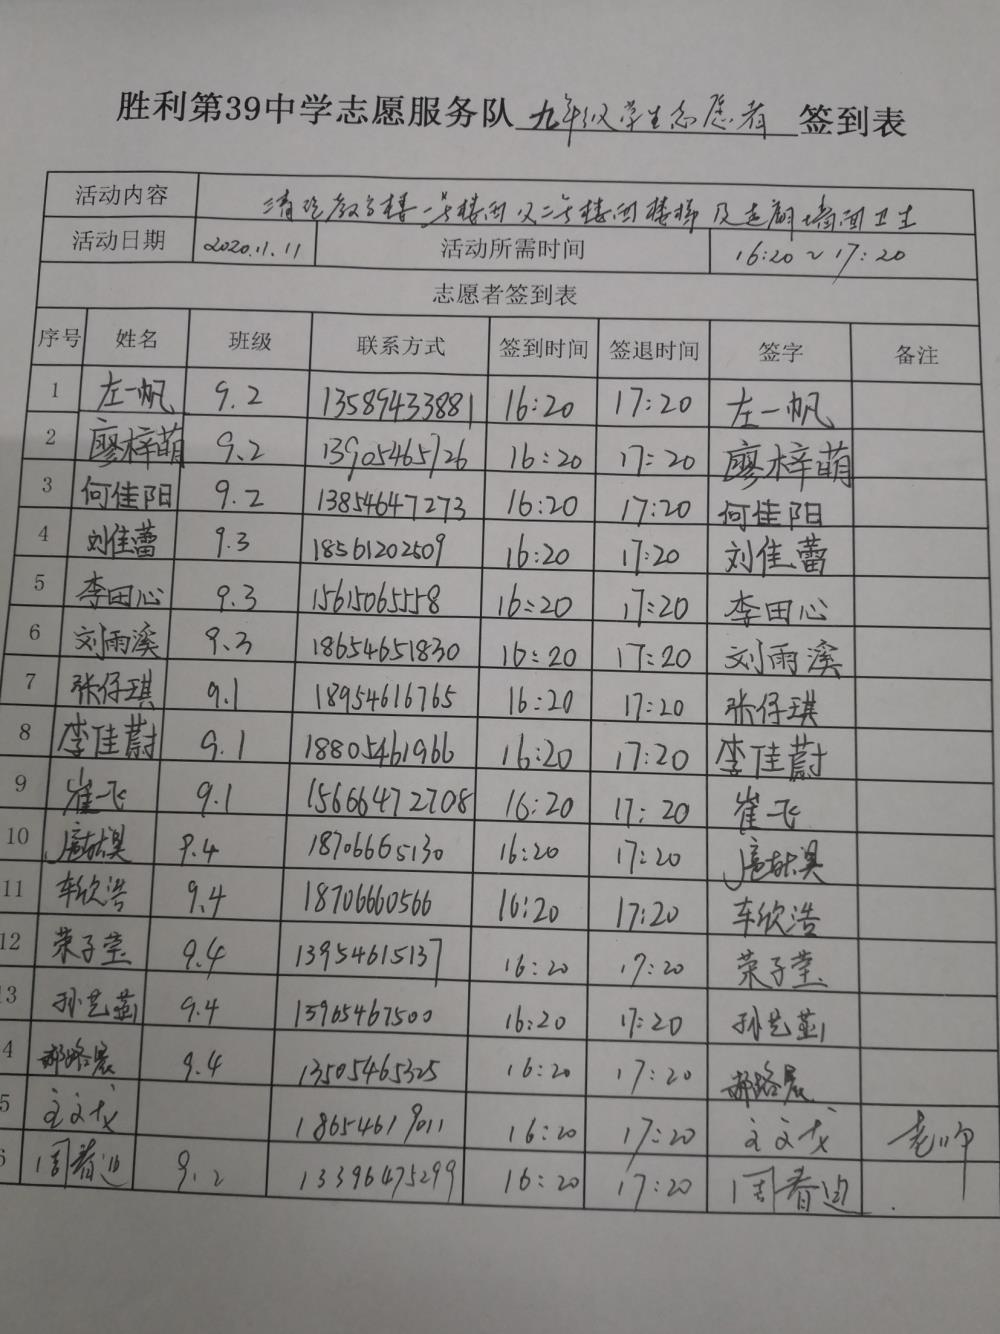 胜利第39中学志愿服务队 九年级学生志愿者 签到表
活动内容 清理教学楼一号楼间及二号楼间楼梯及走廊墙面卫生
活动日期 2020.11.11 活动所需时间 16:20~17:20
志愿者签到表
序号 姓名 班级 联系方式 签到时间 签退时间 签字 备注
1 左一帆 9.2 13589433881 16:20 17:20 左一帆
2 廖梓萌 9.2 13905465726 16:20 17:20 廖梓萌
3 何佳阳 9.2 13854647273 16:20 17:20 何佳阳
4 刘佳蕾 9.3 18561202509 16:20 17:20 刘佳蕾
5 李田心 9.3 15615065558 16:20 17:20 李田心
6 刘雨溪 9.3 18654651830 16:20 17:20 刘雨溪
7 张仔琪 9.1 18954616765 16:20 17:20 张仔琪
8 李佳蔚 9.1 18805461966 16:20 17:20 李佳蔚
9 崔飞 9.1 15666472708 16:20 17:20 崔飞
10 9.4 18706665130 16:20 17:20
11 车欣浩 9.4 18706660566 16:20 17:20 车欣浩
12 荣子莹 9.4 13954615137 16:20 17:20 荣子莹
13 孙艺 9.4 13965467500 16:20 17:20 孙艺
4 郝路晨 9.4 13505465325 16:20 17:20 郝路晨
5 王文成 18654619011 16:20 17:20 王文成 老师
6 周春迪 9.2 13396475299 16:20 17:20 周春迪